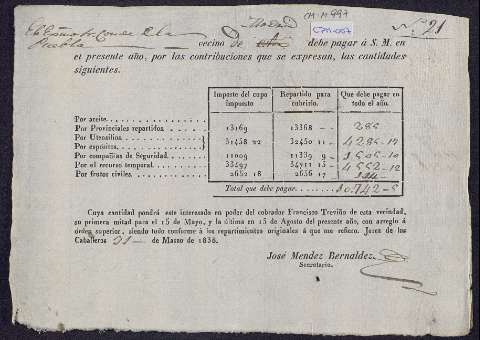 Madrid
CM M 997
C.M-007
Nº 21
El Exmo. Sr. Conde de la
Puebla vecino de esta debe pagar á S. M. en
el presente año, por las contribuciones que se expresan, las cantidades
siguientes.
Importe del cupo impuesto Repartido para cubrirlo. Que debe pagar en todo el año.
Por aceite.
Por Provinciales repartidos 13169 13368 — 286
Por Utensilios
Por espósitos. 31458 22 32450 11 4286-17
Por compañías de Seguridad. 11009 11339 9
Por el recurso temporal. 33497 34911 15 4662-12
Por frutos civiles. 2652 18 2656 17
Total que debe pagar. 10.742-5
Cuya cantidad pondrá este interesado en poder del cobrador Francisco Treviño de esta vecindad,
su primera mitad para el 15 de Mayo, y la última en 15 de Agosto del presente año, con arreglo á
órden superior, siendo todo conforme á los repartimientos originales á que me refiero. Jerez de los
Caballeros 21 de Marzo de 1838.
José Mendez Bernaldez
Secretario.